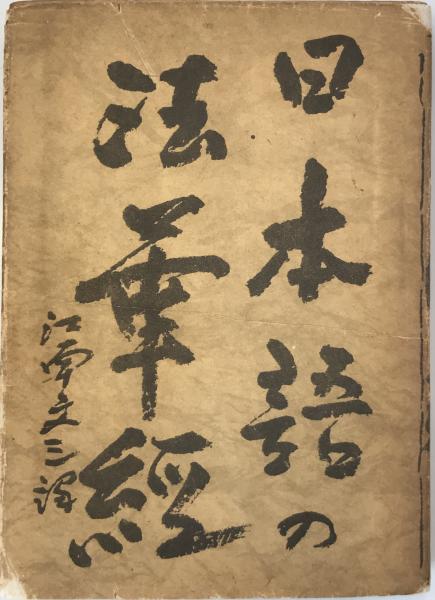 日本語の
法華經
江南文三譯